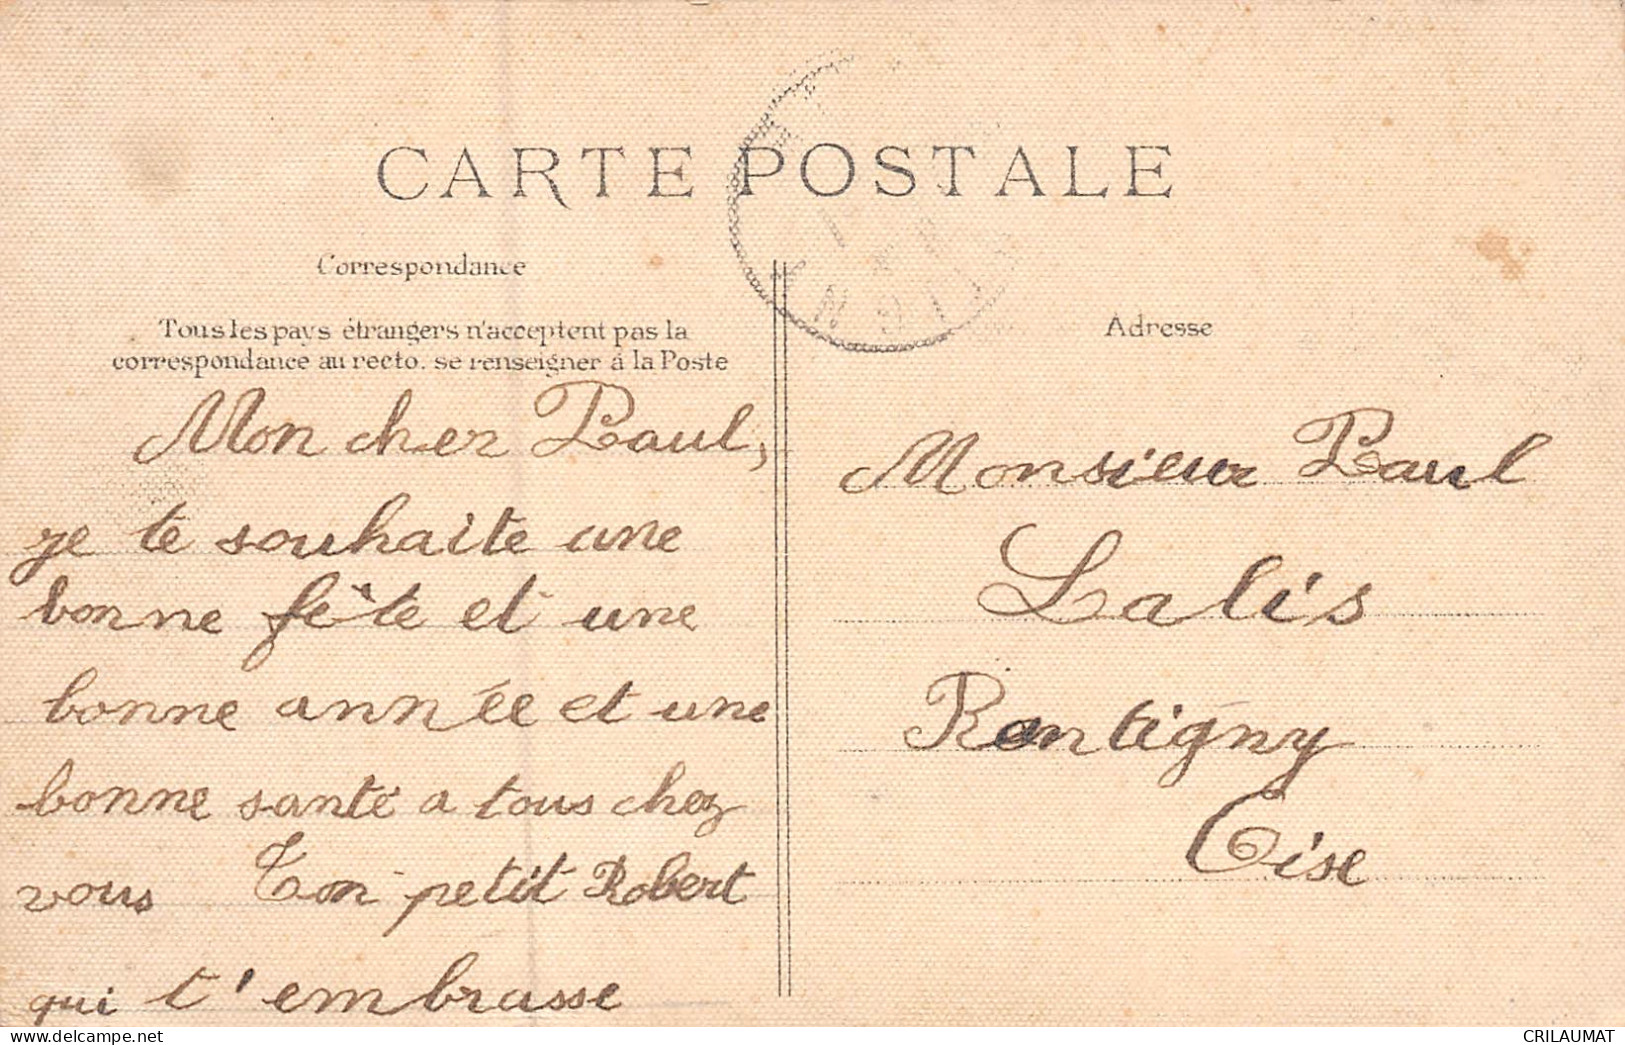 CARTE POSTALE
Correspondance
Tous les pays étrangers n'acceptent pas la
correspondance au recto. se renseigner à la Poste
Adresse
Mon cher Paul,
je te souhaite une
bonne fête et une
bonne année et une
bonne santé a tous chez
vous Ton petit Robert
qui t'embrasse
Monsieur Paul
Lalis
Rantigny
Oise
CRILAUMAT